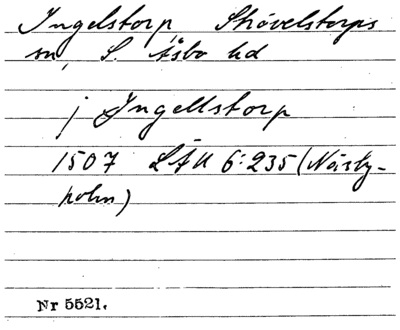 Ingelstorp, Strövelstorps
sn, S. Åsbo hd
j Ingellstorp
1507 LÅU 6:235 (Näsby-
holm)
Nr 5521.